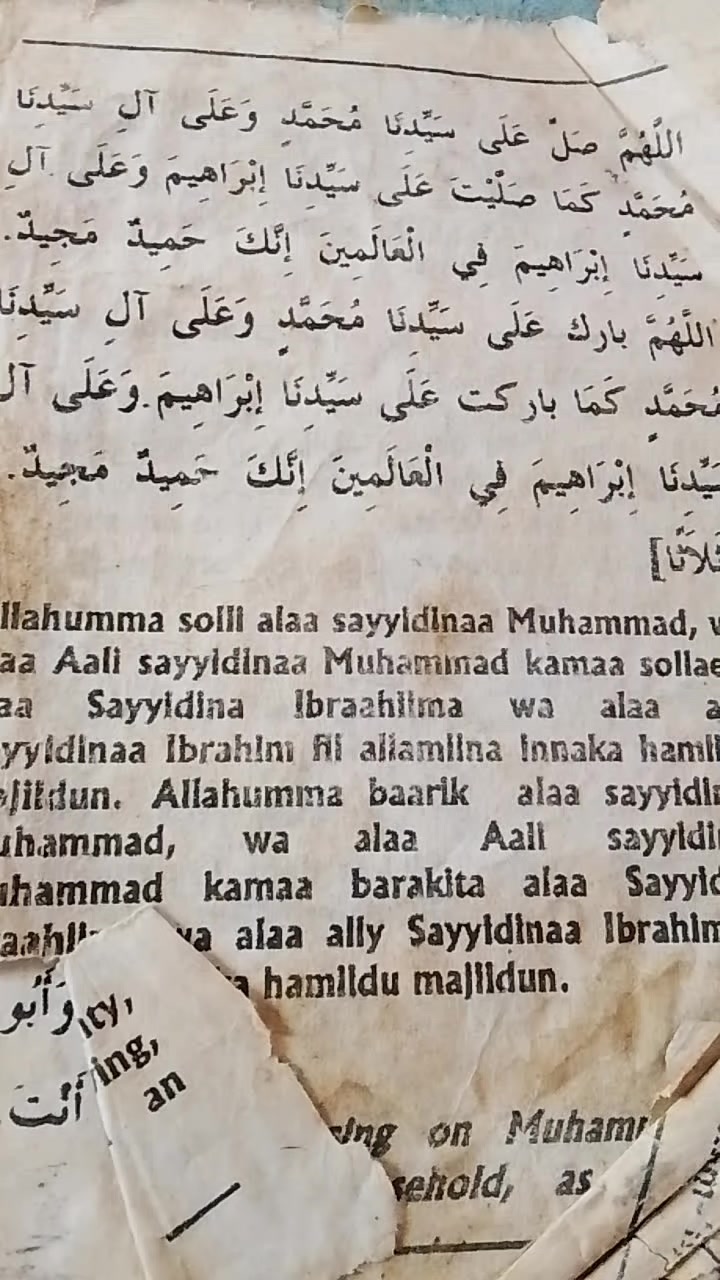 اللَّهُمَّ صَلِّ عَلَى سَيِّدِنَا مُحَمَّدٍ وَعَلَى آلِ سَيِّدِنَا
مُحَمَّدٍ كَمَا صَلَّيْتَ عَلَى سَيِّدِنَا إِبْرَاهِيمَ وَعَلَى آلِ
سَيِّدِنَا إِبْرَاهِيمَ فِي الْعَالَمِينَ إِنَّكَ حَمِيدٌ مَجِيدٌ.
اللَّهُمَّ بارك عَلَى سَيِّدِنَا مُحَمَّدٍ وَعَلَى آلِ سَيِّدِنَا
مُحَمَّدٍ كَمَا باركت عَلَى سَيِّدِنَا إِبْرَاهِيمَ وَعَلَى آل
سَيِّدِنَا إِبْرَاهِيمَ فِي الْعَالَمِينَ إِنَّكَ حَمِيدٌ مَجِيدٌ.
ثَلاَثًا]
llahumma solli alaa sayyidinaa Muhammad, w
aa Aali sayyidinaa Muhammad kamaa sollae
aa Sayyidina Ibraahiima wa alaa a
yyidinaa Ibrahim fil allamiina innaka hamii
jiidun. Allahumma baarik alaa sayyidin
uhammad, wa alaa Aali sayyidin
uhammad kamaa barakita alaa Sayyid
aahii wa alaa ally Sayyidinaa Ibrahim
a hamiidu majiidun.
وَأَبُو
ity,
ing,
أَنْتَ
an
sing on Muhamm
sehold, as